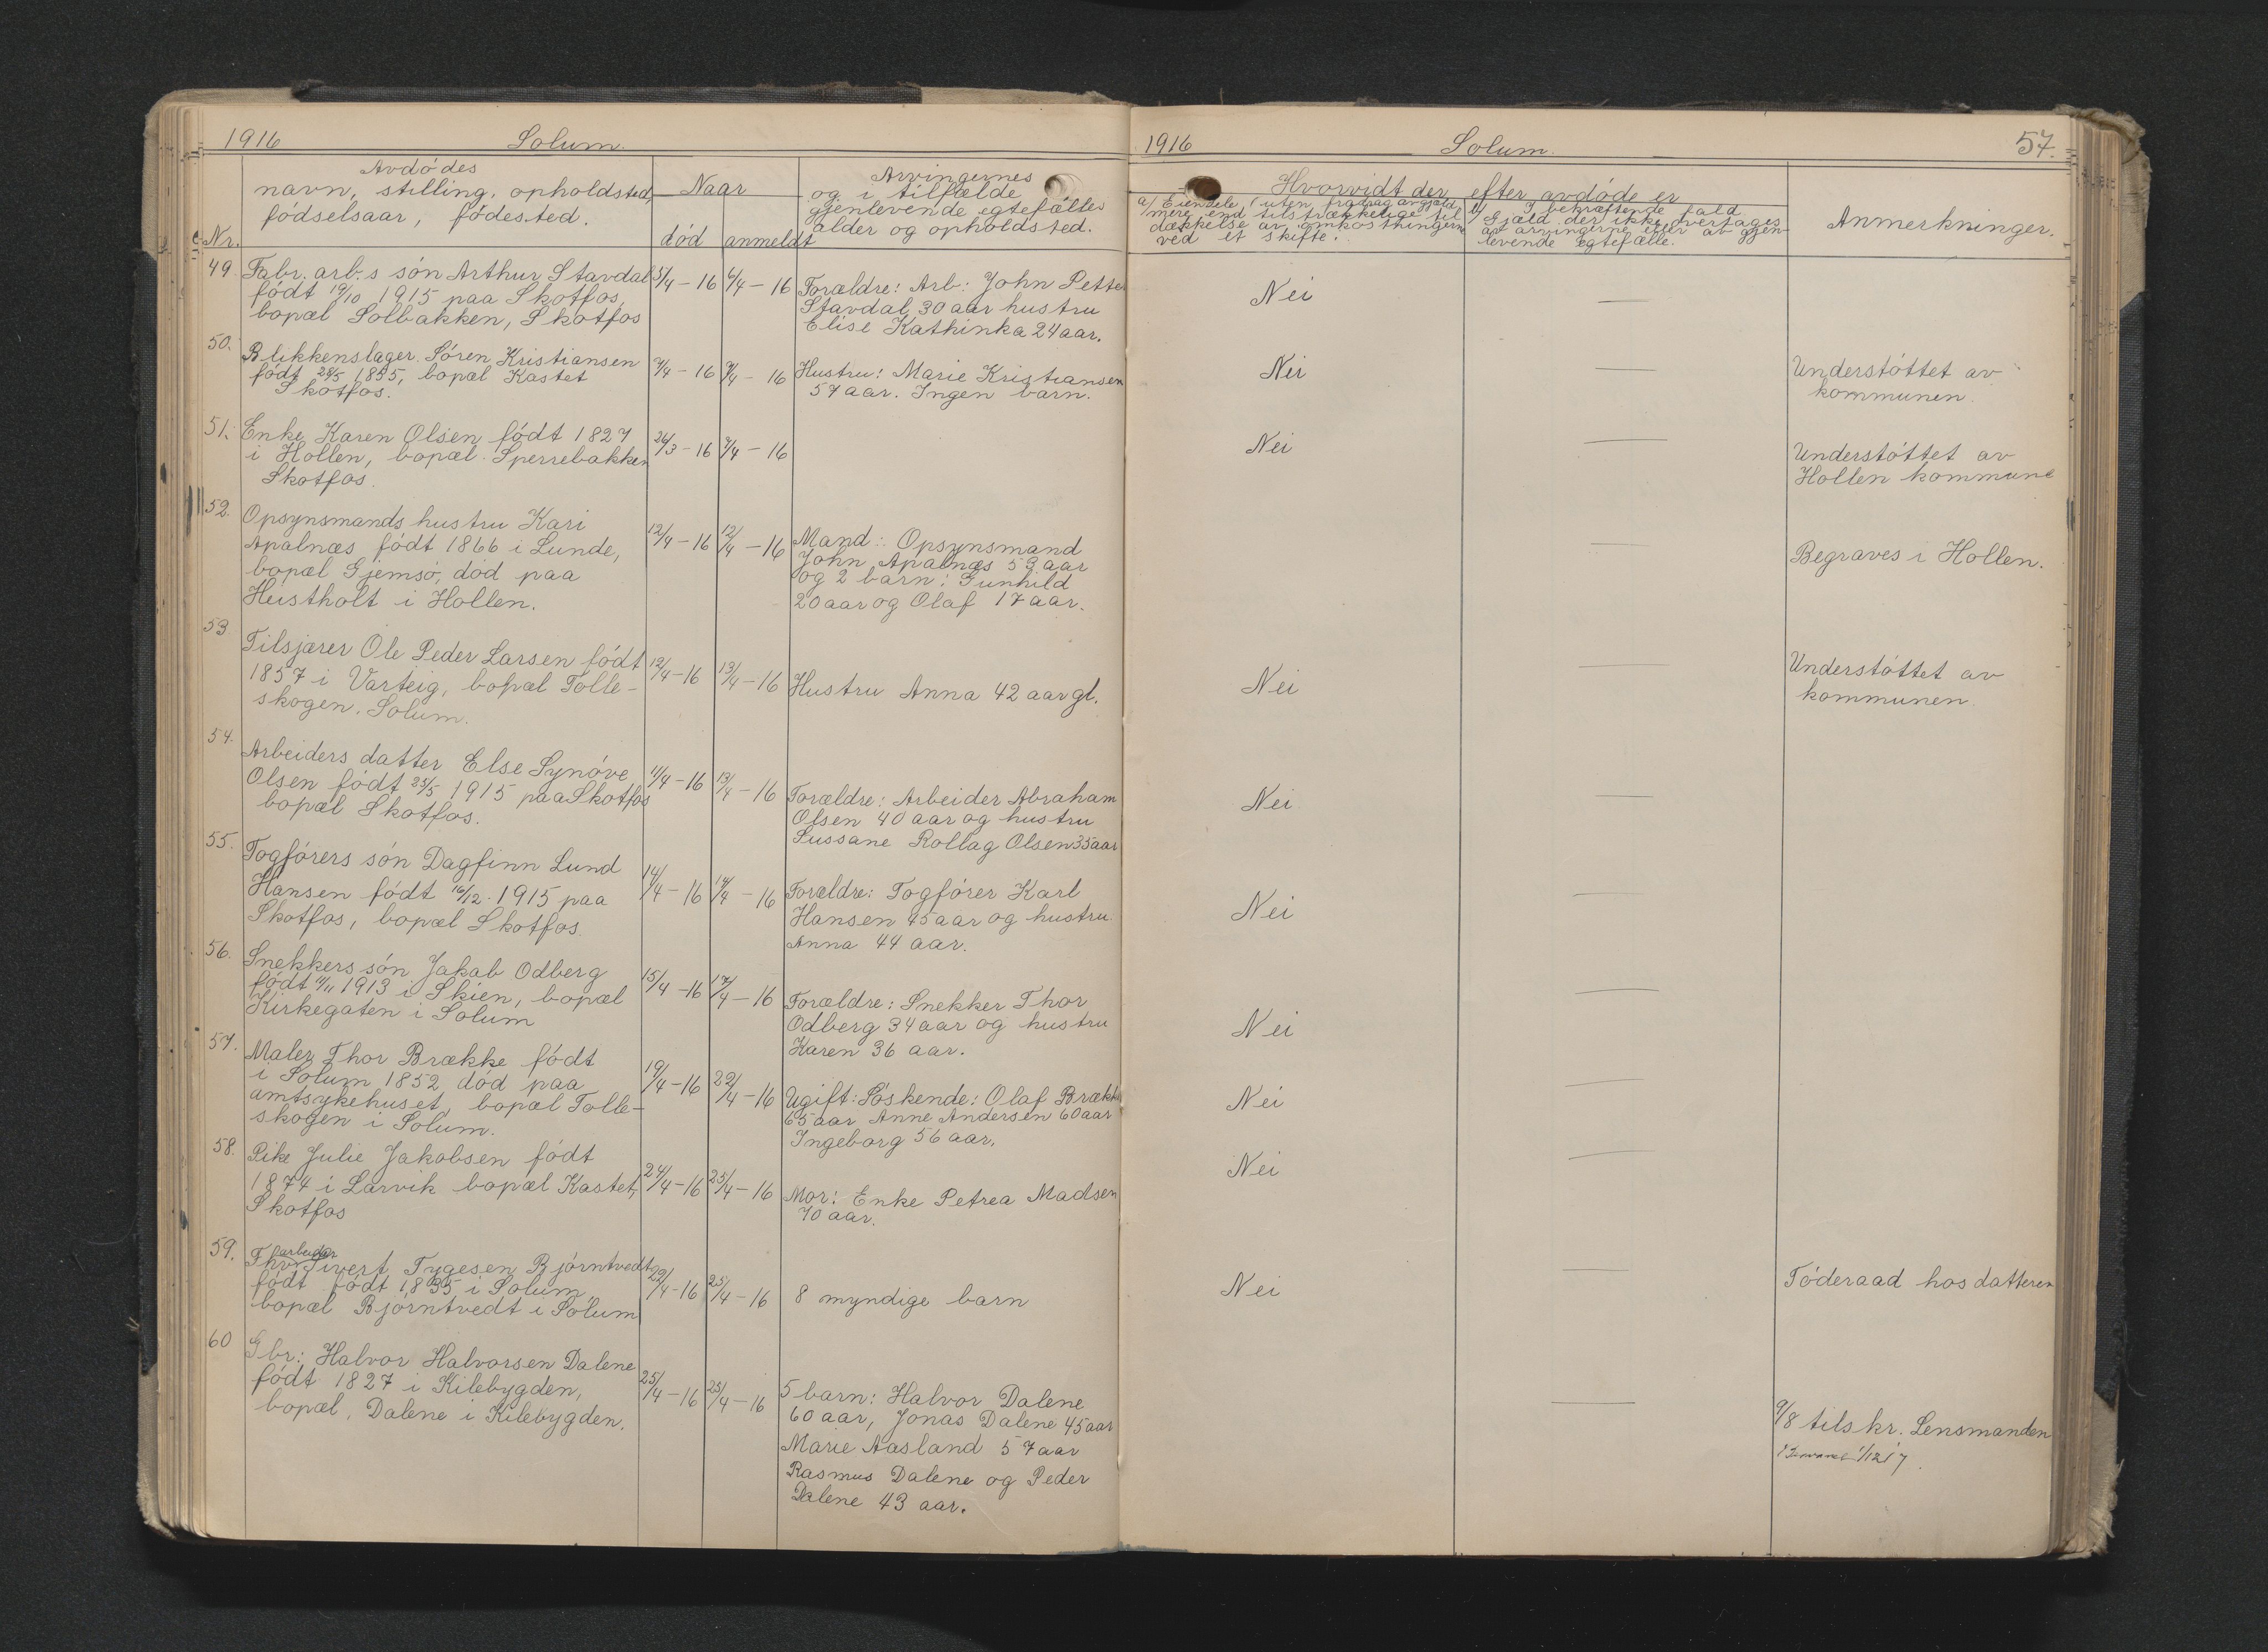 1916 Solum.
Nr.
Avdödes
navn, stilling, opholdsted,
födselsaar, födested.
Naar
död anmeldt
Arvingernes
og i tilfælde
gjenlevende egtefælles
alder og opholdsted.
49. Fabr. arb.s sön Arthur Stavdal
födt 19/10 1915 paa Skotfos,
bopæl Solbakken, Skotfos
5/4 - 16 6/4 - 16
Forældre: Arb: John Petter
Stavdal 30 aar hustru
Elise Kathinka 24 aar.
50. Blikkenslager Sören Kristiansen
födt 28/5 1855, bopæl Kastet
Skotfos.
7/4 - 16 7/4 - 16
Hustru: Marie Kristiansen
57 aar. Ingen barn.
51. Enke Karen Olsen födt 1827
i Hollen, bopæl Sperrebakken
Skotfos.
26/3 - 16 7/4 - 16
52. Opsynsmands hustru Kari
Apalnæs födt 1866 i Lunde,
bopæl Gjemsö, död paa
Heistholt i Hollen.
12/4 - 16 12/4 - 16
Mand: Opsynsmand
John Apalnæs 53 aar
og 2 barn: Gunhild
20 aar og Olaf 17 aar.
53 Filsjærer Ole Peder Larsen födt
1857 i Varteig, bopæl Tolle-
skogen. Solum.
12/4 - 16 13/4 - 16
Hustru Anna 42 aar gl.
54. Arbeiders datter Else Synöve
Olsen födt 25/5 1915 paa Skotfos
bopæl Skotfos.
11/4 - 16 13/4 - 16
Forældre: Arbeider Abraham
Olsen 40 aar og hustru
Sussane Rollag Olsen 35 aar
55. Togförers sön Dagfinn Lund
Hansen födt 16/12 1915 paa
Skotfos, bopæl Skotfos.
14/4 - 16 14/4 - 16
Forældre: Togförer Karl
Hansen 45 aar og hustru
Anna 44 aar.
56. Snekkers sön Jakob Odberg
födt 11/11 1913 i Skien, bopæl
Kirkegaten i Solum
15/4 - 16 17/4 - 16
Forældre: Snekker Thor
Odberg 34 aar og hustru
Karen 36 aar.
57. Maler Thor Brække födt
i Solum 1852 död paa
amtsykehuset, bopæl Tolle-
skogen i Solum.
19/4 - 16 22/4 - 16
Ugift: Söskende: Olaf Brække
65 aar Anne Andersen 60 aar
Ingeborg 56 aar.
58. Pike Julie Jakobsen födt
1874 i Larvik bopæl Kastet,
Skotfos
24/4 - 16 25/4 - 16
Mor: Enke Petrea Madsen
70 aar.
59. arbeider
Sivert Tygesen Björntvedt
födt födt 1835 i Solum
bopæl Björntvedt i Solum
22/4 - 16 25/4 - 16
8 myndige barn
60 Gbr: Halvor Halvorsen Dalene
födt 1827 i Kilebygden,
bopæl, Dalene i Kilebygden.
25/4 - 16 25/4 - 16
5 barn: Halvor Dalene
60 aar, Jonas Dalene 45 aar
Marie Aasland 57 aar
Rasmus Dalene og Peder
Dalene 43 aar.
1916 Solum. 57.
Hvorvidt der efter avdöde er
a/ Eiendele, uten fradrag av gjæld
mere end tilstrækkelige til
dækkelse av omkostningerne
ved et skifte.
b/ I bekræftende fald
Gjæld der ikke overtages
av arvingerne eller av gjen-
levende egtefælle.
Anmerkninger.
Nei —
Nei — Understöttet av
kommunen.
Nei — Understöttet av
Hollen kommune
— Begraves i Hollen.
Nei — Understöttet av
kommunen.
Nei —
Nei —
Nei —
Nei —
Nei —
Nei — Föderaad hos datteren
— 9/8 tilskr. Lensmanden
1/12 17